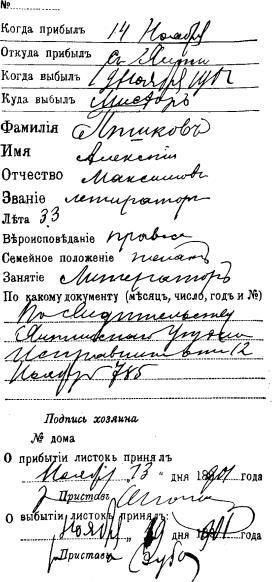 №
Когда прибылъ 14 Ноября
Откуда прибылъ съ Ялты
Когда выбылъ Ноября
Куда выбылъ
Фамилія Пѣшковъ
Имя Алексѣй
Отчество Максимовъ
Званіе литераторъ
Лѣта 33
Вѣроисповѣданіе правос
Семейное положеніе женатъ
Занятіе Литераторъ
По какому документу (мѣсяцъ, число, годъ и №)
По свидѣтельству
Ялтинскаго Уѣзднаго
Исправника отъ 12
Ноября 785
Подпись хозяина
№ дома
О прибытіи листокъ принялъ
Ноября 13 дня 1901 года
Приставъ
О выбытіи листокъ принялъ:
Ноября дня 1901 года
Приставъ